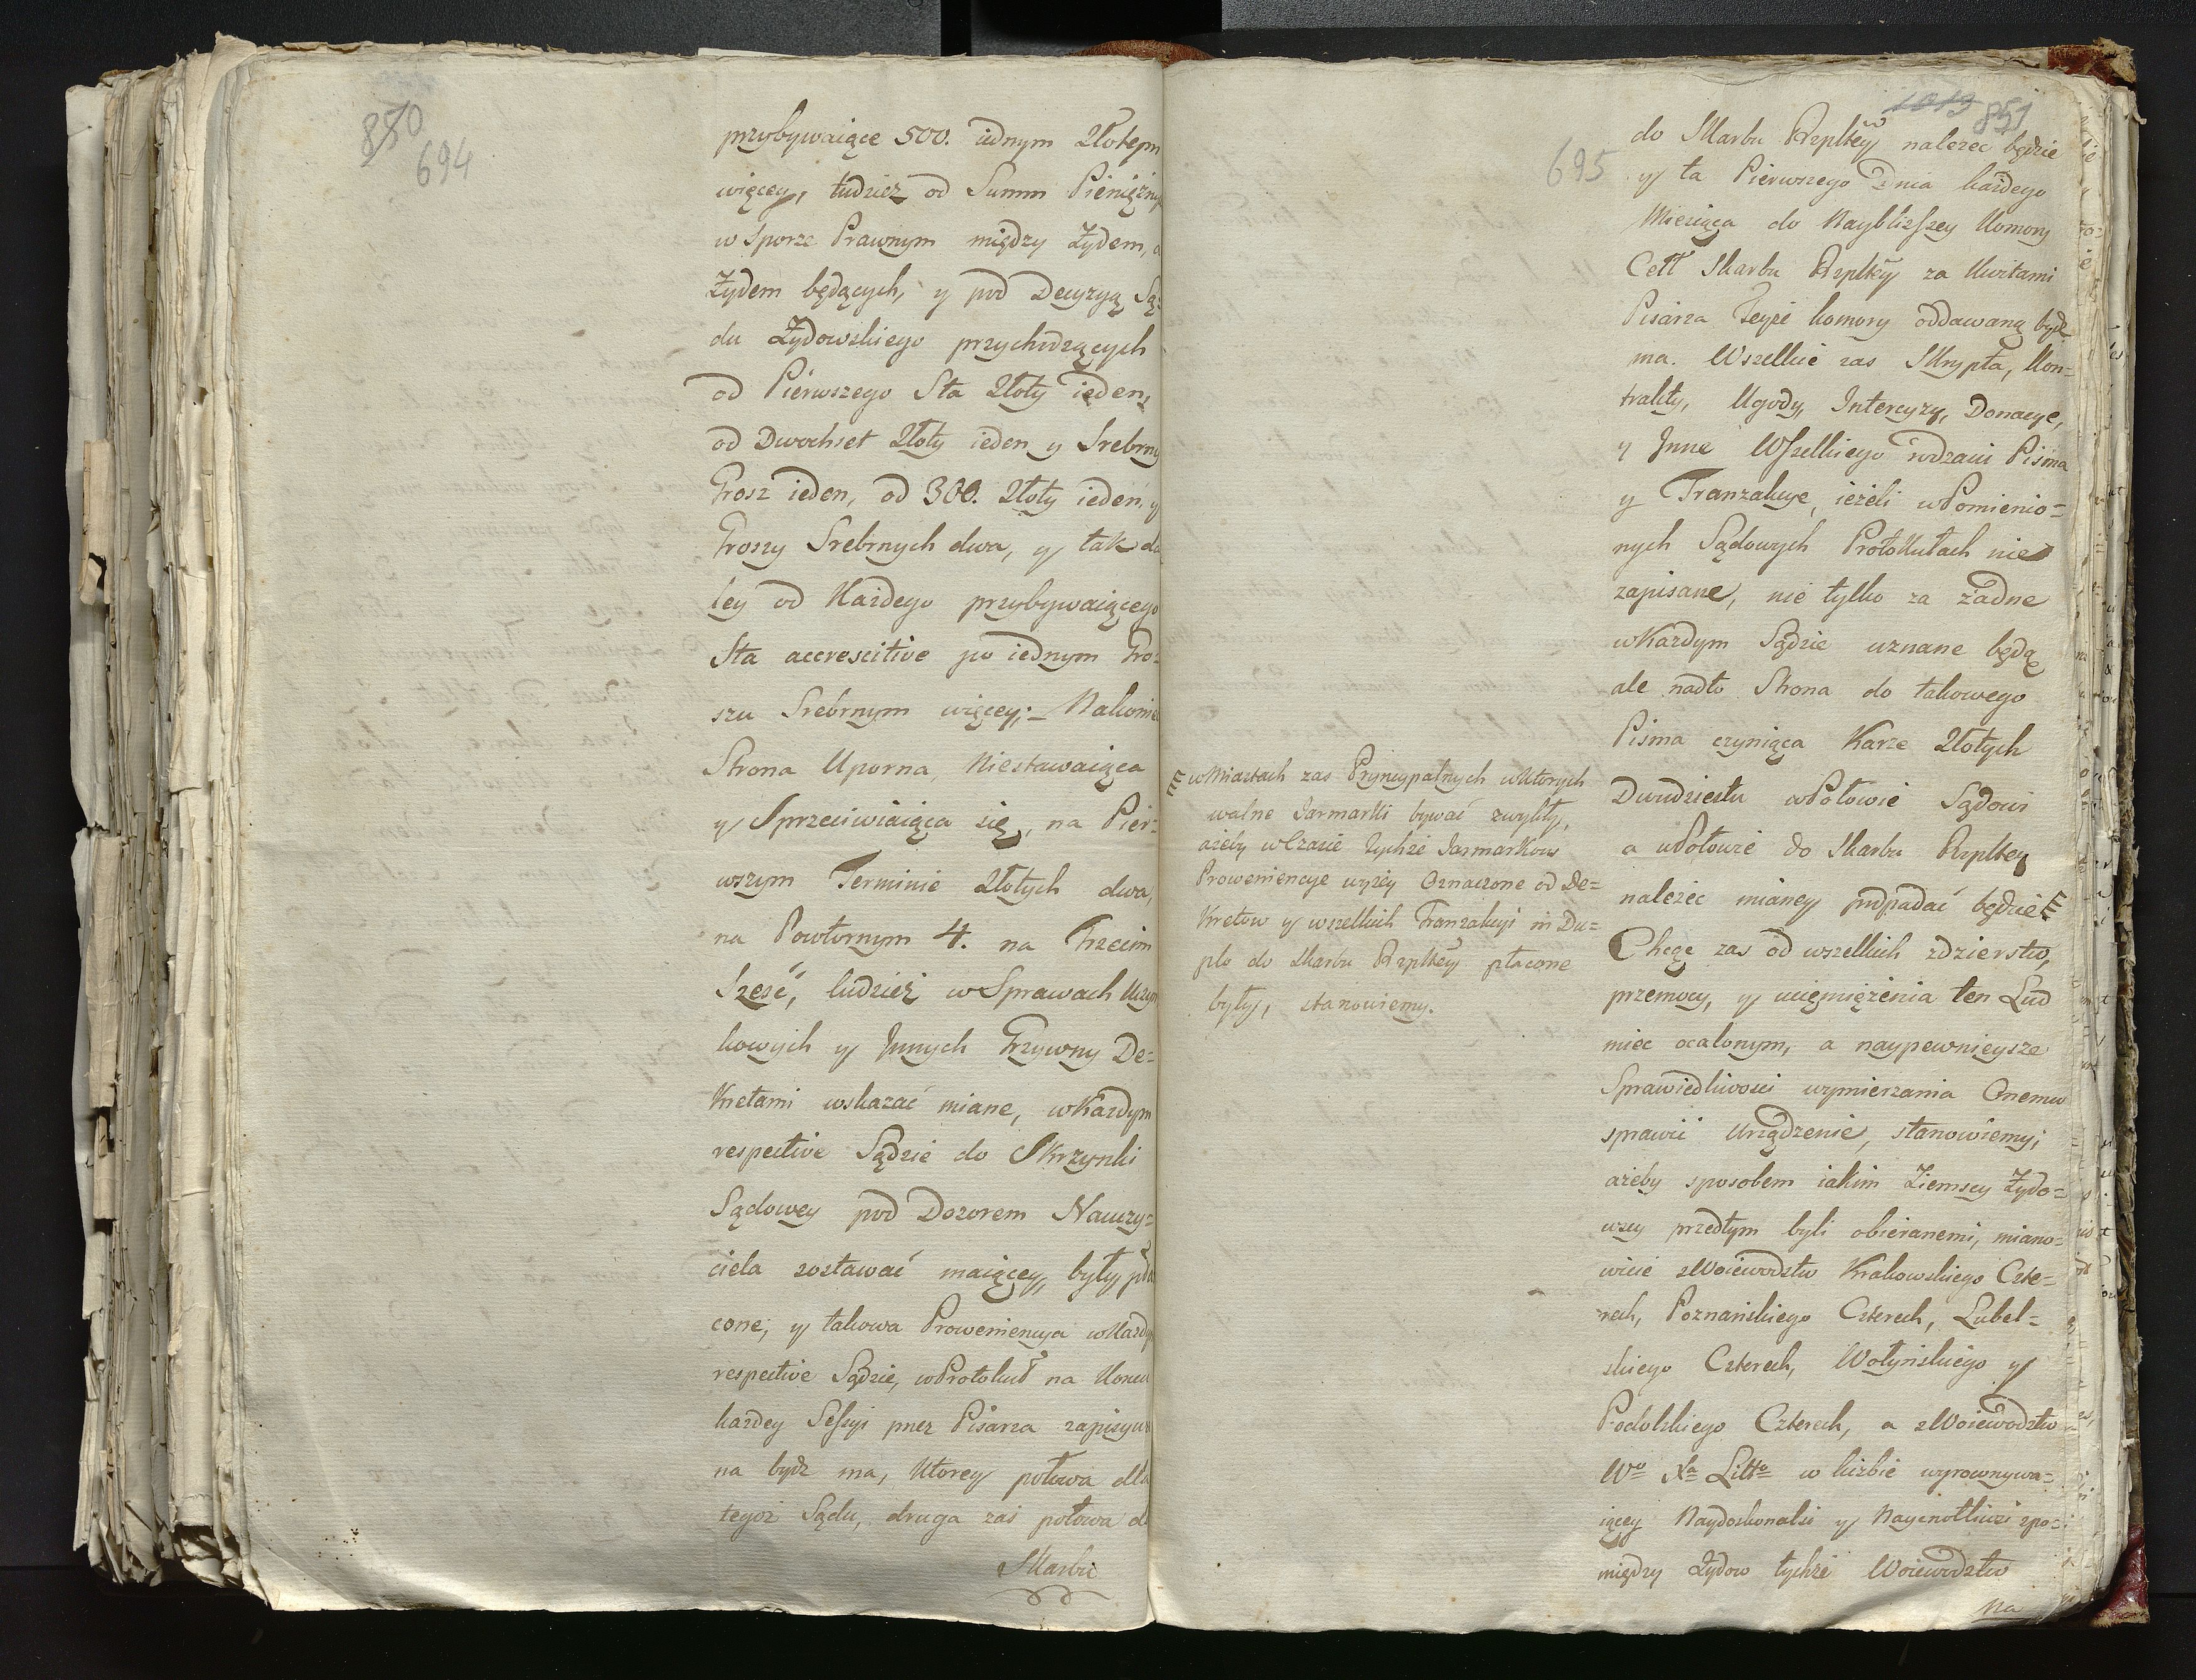 850
694
przybywaiące 500. iednym Złotym
więcey, tudziez od Summ Pieniężny
w Sporze Prawnym między Żydem, a
Żydem będących, y pod Decyzyą Są-
du Żydowskiego przychodzących
od Pierwszego Sta Złoty ieden,
od Dwochset Złoty ieden y Srebrny
Grosz ieden, od 300. Złoty ieden, y
Groszy Srebrnych dwa, y tak da
ley od Kazdego przybywaiącego
Sta accrescitive po iednym Gro-
szu Srebrnym więcey; – Nakonie
Strona Uporna, Niestawaiąca
y Sprzeciwiaiąca się, na Pier-
wszym Terminie Złotych dwa,
na Powtornym 4. na Trzecim
Szesć, tudzież w Sprawach Uczyn
kowych y Jnnych Grzywny De-
kretami wskazać miane, wKazdym
respective Sądzie do Skrzynki
Sądowey pod Dozorem Nauczy-
ciela zostawać maiącey, były pła
cone, y takowa Proweniencya wKazdy
respective Sądzie, wProtokuł na Koncu
kazdey Sessyi przez Pisarza zapisywa
na bydz ma, Ktorey połowa dla
tegoż Sądu, druga zaś połowa d
Skarbu
1013 851
695
do Skarbu Rzpltey nalezec będzie
y ta Pierwszego Dnia kazdego
Miesiąca do Nayblizszey Komory
Cell Skarbu Rzpltey za Kwitami
Pisarza Teyże komory oddawaną bydz
ma. Wszelkie zas Skrypta, Kon-
trakty, Ugody, Intercyzy, Donacye,
y Jnne Wszelkiego rodzaiu Pisma
y Tranzakcye, ieżeli wPomienio-
nych Sądowych Protokułach nie
zapisane, nie tylko za żadne
wKazdym Sądzie uznane będą
ale nadto Strona do takowego
Pisma czyniąca Karze Złotych
Dwudziestu wPołowie Sądowi
a wPołowie do Skarbu Rzpltey
nalezec mianey podpadać będzie
Chcąc zas od wszelkich zdzierstw,
przemocy, y uciemiężenia ten Lud
miec ocalonym, a naypewnieysze
Sprawiedliwosci wymierzania Onemu
sprawić Urządzenie, stanowiemy;
ażeby sposobem iakim Ziemscy Żydo-
wscy przedtym byli obieranemi, miano-
wicie zWoiewodztw Krakowskiego Czte-
rech, Poznańskiego Czterech, Lubel-
skiego Czterech, Wołyńskiego y
Podolskiego Czterech, a zWoiewodztw
Wo Xa Litto w liczbie wyrownywa-
iącey Naydoskonalsi y Naycnotliwsi zpo-
między Żydow tychże Woiewodztw
na
wMiastach zas Pryncypalnych wKtorych
walne Jarmarki bywać zwykły,
ażeby wCzasie Tychże Jarmarkow
Proweniencye wyżey Oznaczone od De-
kretow y wszelkich Tranzakcyi in Du-
plo do Skarbu Rzpltey płacone
były, stanowiemy.